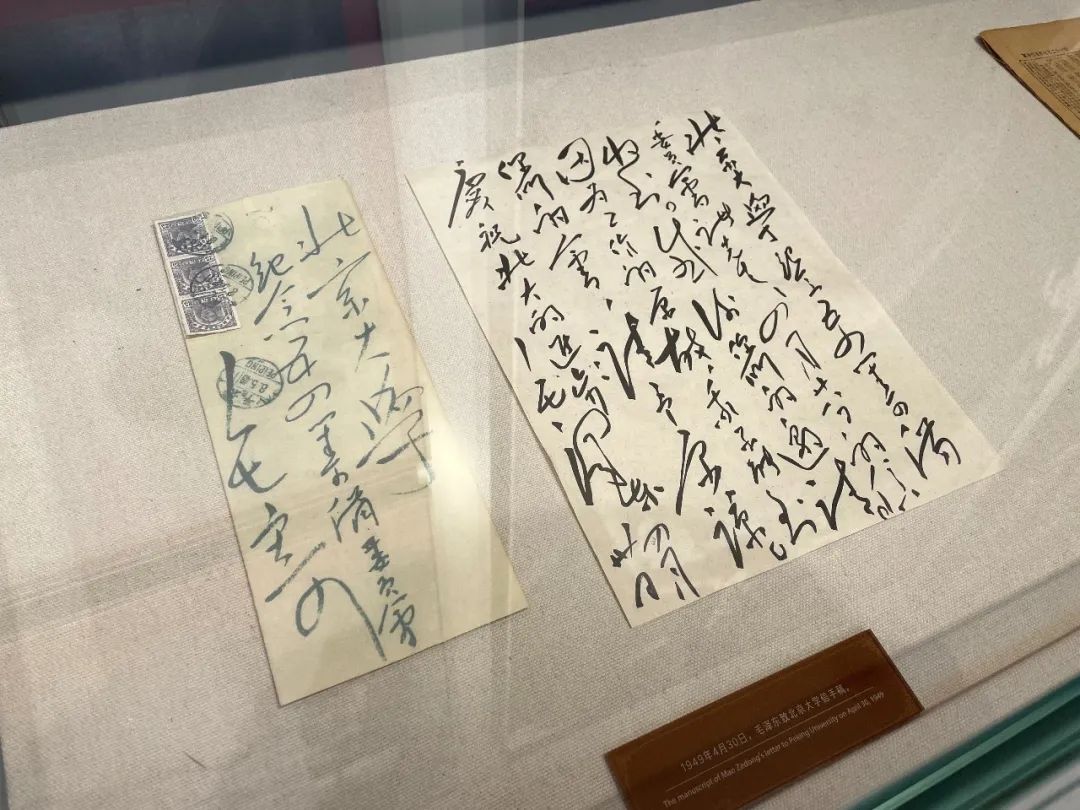 北京大學
纪念五四筹備委员會
毛
PEIPING
北京大學纪念五四筹備
委员會诸先生：四月廿八日的信
收到。感谢你们的邀请。
因为工作的原故，我不能到
你们的會，请予原谅。
庆祝北大的進步！
毛泽东
四月卅日
1949年4月30日，毛泽东致北京大学信手稿。
The manuscript of Mao Zedong's letter to Peking University on April 30, 1949